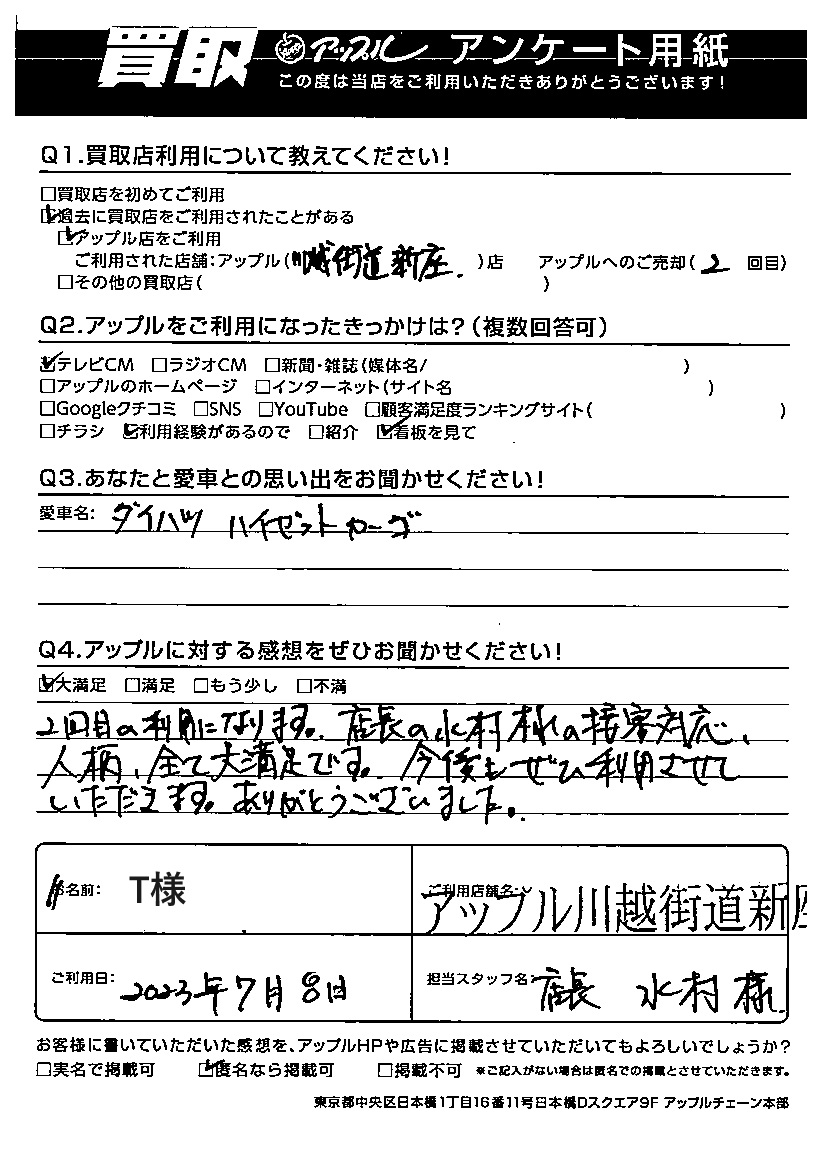 買取 アップル アンケート用紙
この度は当店をご利用いただきありがとうございます!
Q1.買取店利用について教えてください!
□買取店を初めてご利用
☑過去に買取店をご利用されたことがある
☑アップル店をご利用
ご利用された店舗:アップル(川越街道新座.)店 アップルへのご売却(2 回目)
□その他の買取店( )
Q2.アップルをご利用になったきっかけは?(複数回答可)
☑テレビCM □ラジオCM □新聞・雑誌(媒体名/ )
□アップルのホームページ □インターネット(サイト名 )
□Googleクチコミ □SNS □YouTube □顧客満足度ランキングサイト( )
□チラシ ☑利用経験があるので □紹介 ☑看板を見て
Q3.あなたと愛車との思い出をお聞かせください!
愛車名: ダイハツ ハイゼットカーゴ
Q4.アップルに対する感想をぜひお聞かせください!
☑大満足 □満足 □もう少し □不満
2回目の利用になります。店長の水村様の接客対応、
人柄、全て大満足です。今後もぜひ利用させて
いただきます。ありがとうございました。
お名前: T様 ご利用店舗名: アップル川越街道新座
ご利用日: 2023年7月8日 担当スタッフ名: 店長 水村様
お客様に書いていただいた感想を、アップルHPや広告に掲載させていただいてもよろしいでしょうか?
□実名で掲載可 ☑匿名なら掲載可 □掲載不可 ※ご記入がない場合は匿名での掲載とさせていただきます。
東京都中央区日本橋1丁目16番11号日本橋Dスクエア9F アップルチェーン本部